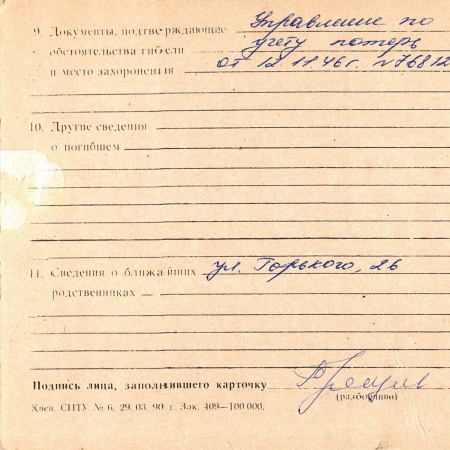 9. Документы, подтверждающие Управление по
обстоятельства гибели учету потерь
и место захоронения от 12.11.46 г. №76812
10. Другие сведения
о погибшем
11. Сведения о ближайших ул. Горького, 26
родственниках
Подпись лица, заполнившего карточку
(разборчиво)
Киев. СПТУ № 6, 29. 03. 90 г. Зак. 409—100 000.